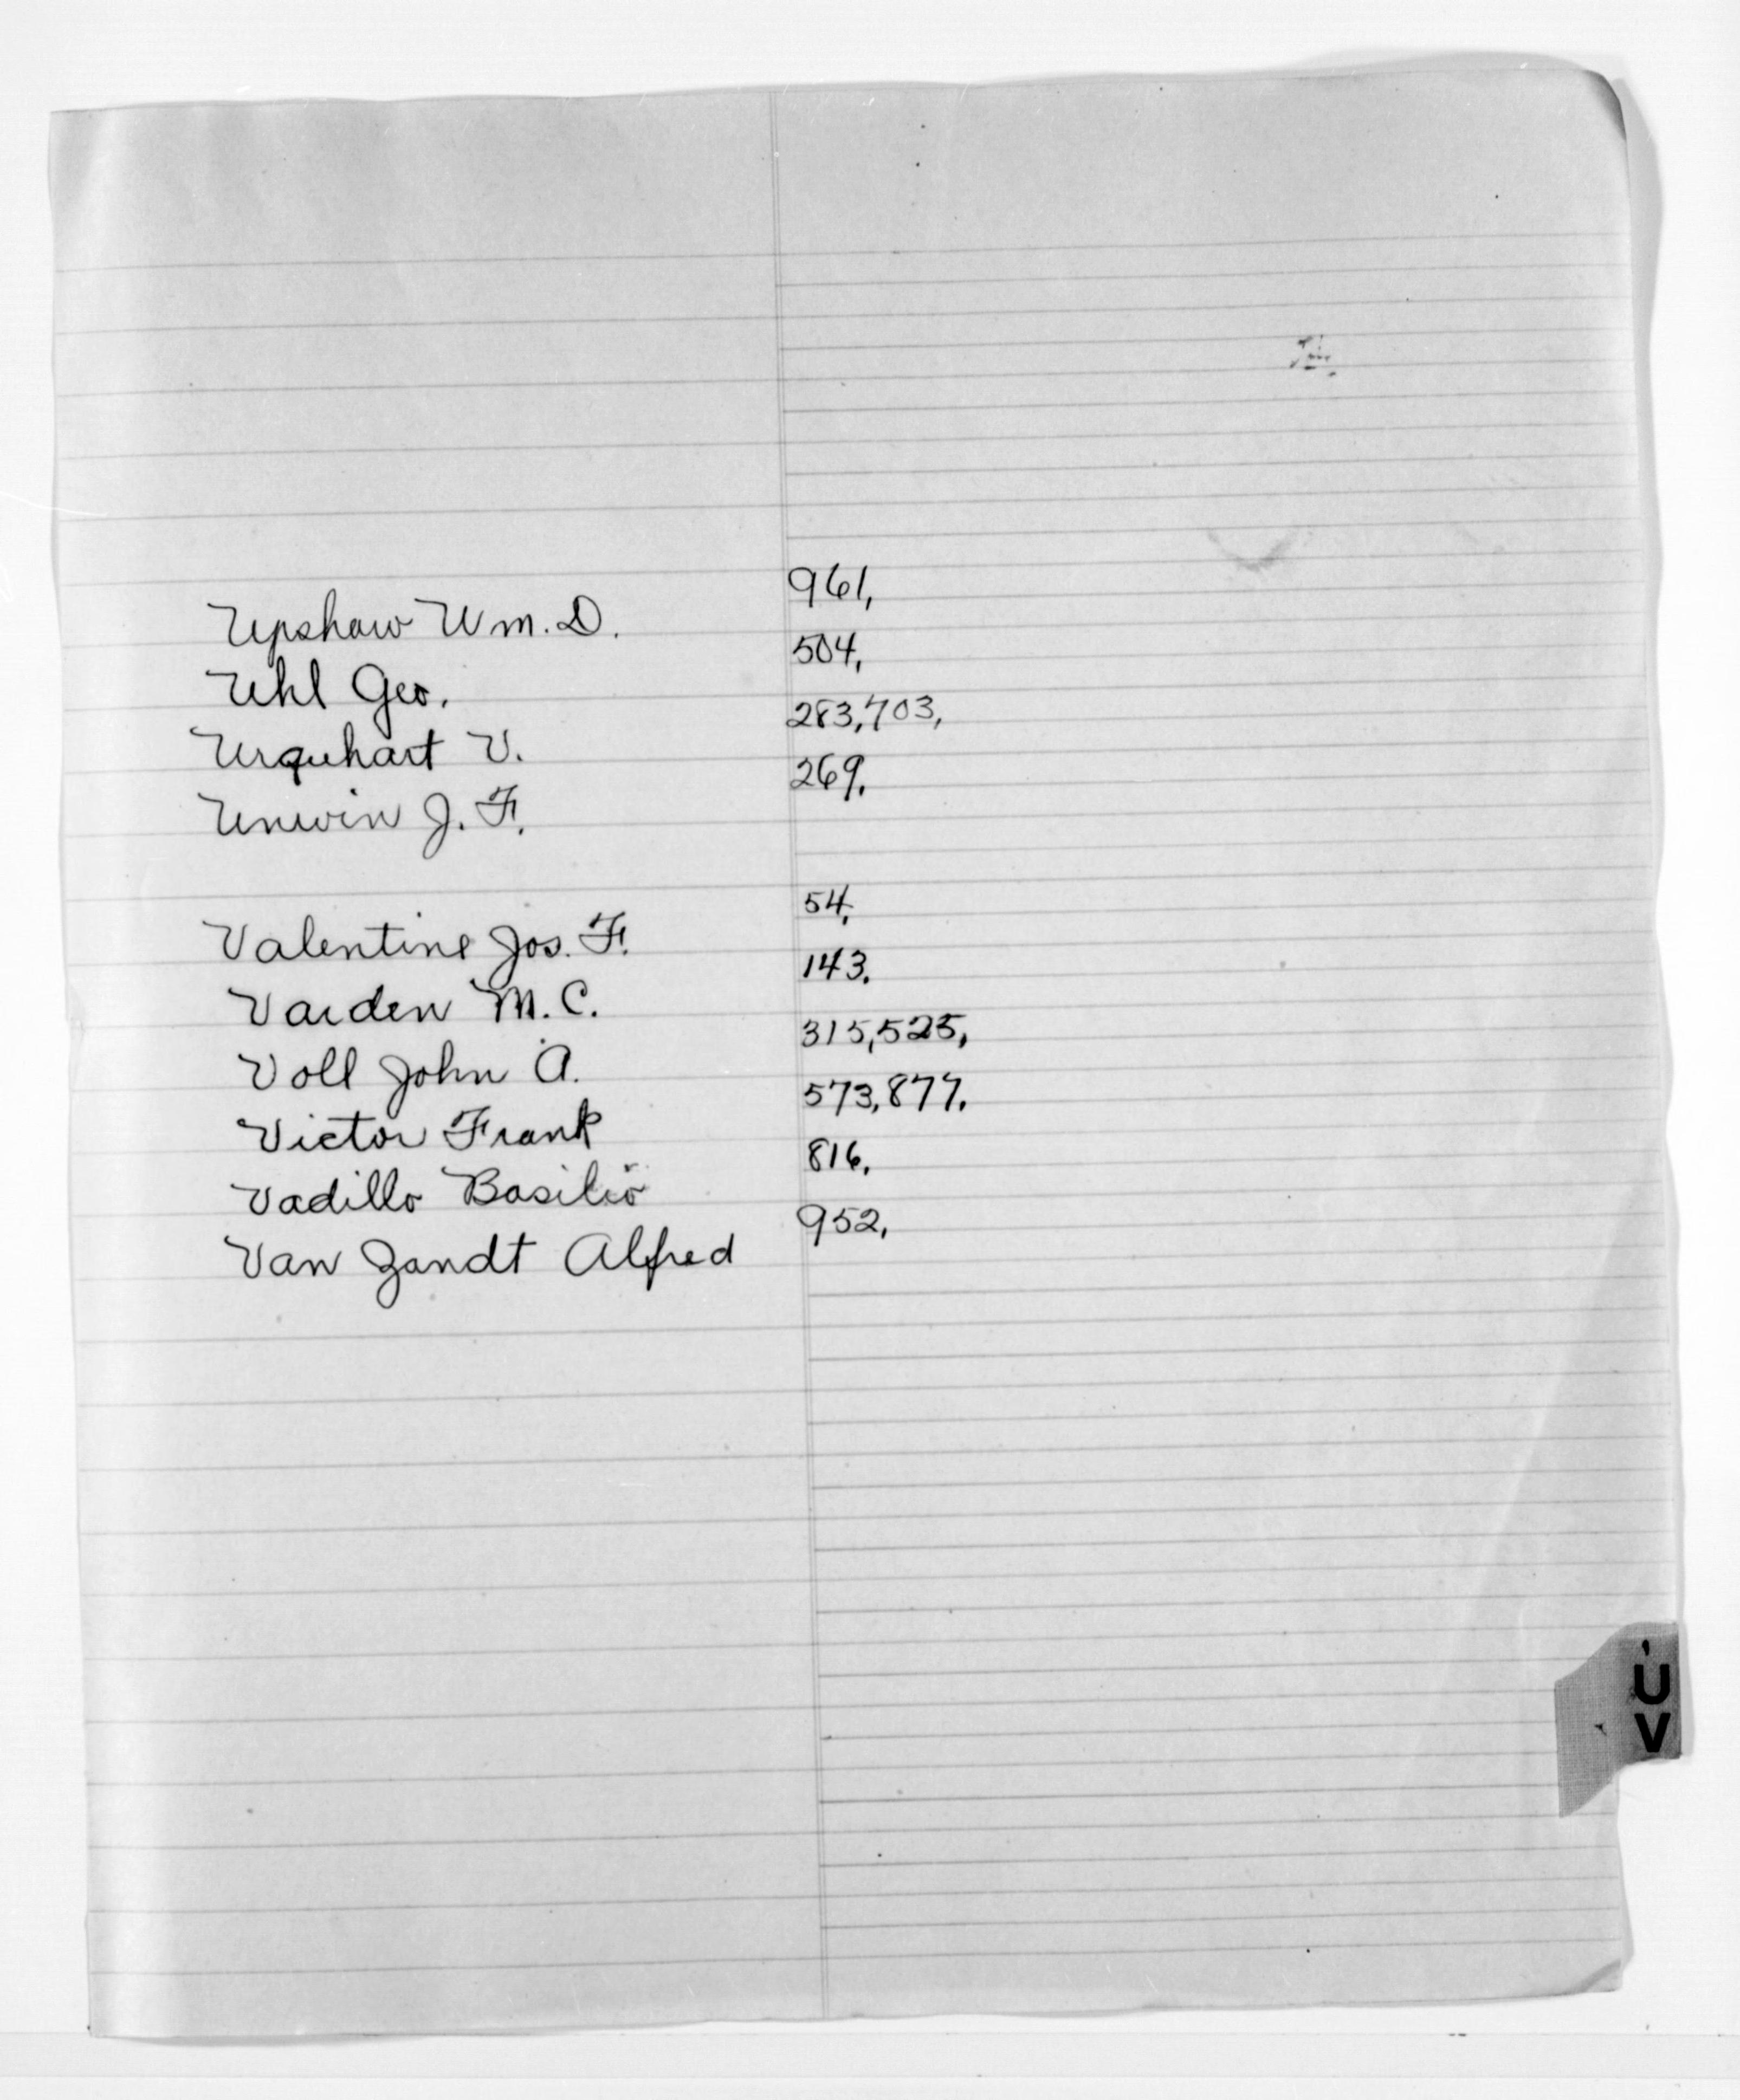 Upshaw Wm. D. 961,
Uhl Geo. 504,
Urquhart V. 283,703,
Unwin J. F. 269.
Valentine Jos. F. 54,
Varden M. C. 143.
Voll John A. 315,525,
Victor Frank 573,877.
Vadillo Basilio 816.
Van Zandt Alfred 952,
U
V